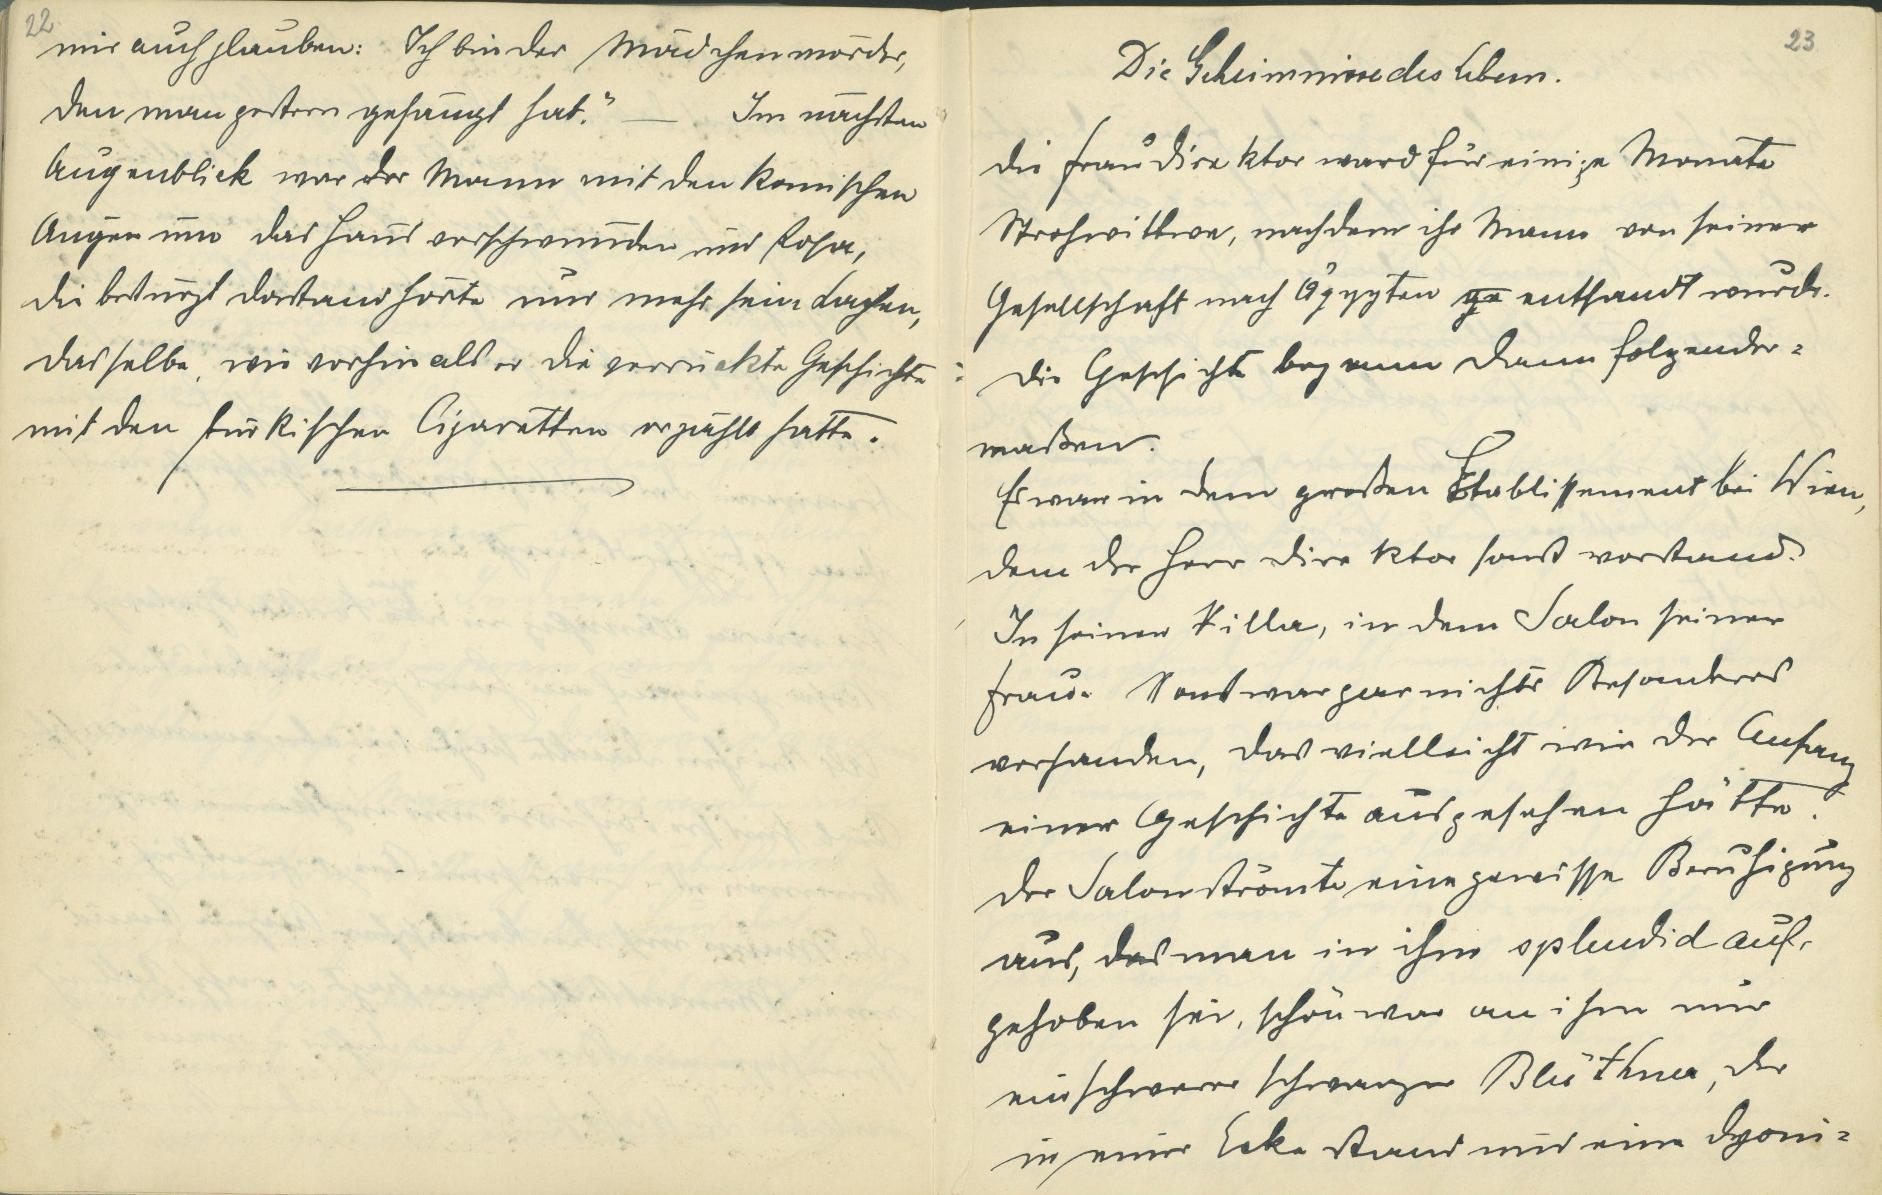 22
mir auch glauben: Ich bin der Mädchenmörder,
den man gestern gehängt hat." — Im nächsten
Augenblick war der Mann mit den komischen
Augen um das Haus verschwunden und Rosa,
die bestürzt dastand hörte nur mehr sein Lachen,
dasselbe, wie vorhin als er die verrückte Geschichte
mit den türkischen Cigaretten erzählt hatte.
23
Die Geheimnisse des Lebens.
Die Frau Direktor ward für einige Monate
Strohwittwe, nachdem ihr Mann von seiner
Gesellschaft nach Ägypten ge entsandt wurde.
Die Geschichte begann dann folgender=
maßen.
Es war in dem großen Etablissement bei Wien,
dem der Herr Direktor sonst vorstand.
In seiner Villa, in dem Salon seiner
Frau. Sonst war gar nichts Besonderes
vorhanden, das vielleicht wie der Anfang
einer Geschichte ausgesehen hätte.
Der Salon strömte eine gewisse Beruhigung
aus, das man in ihm splendid auf-
gehoben sei, schön war an ihm nur
ein schwerer schwarzer Blüthner, der
in einer Ecke stand und eine dyoni=